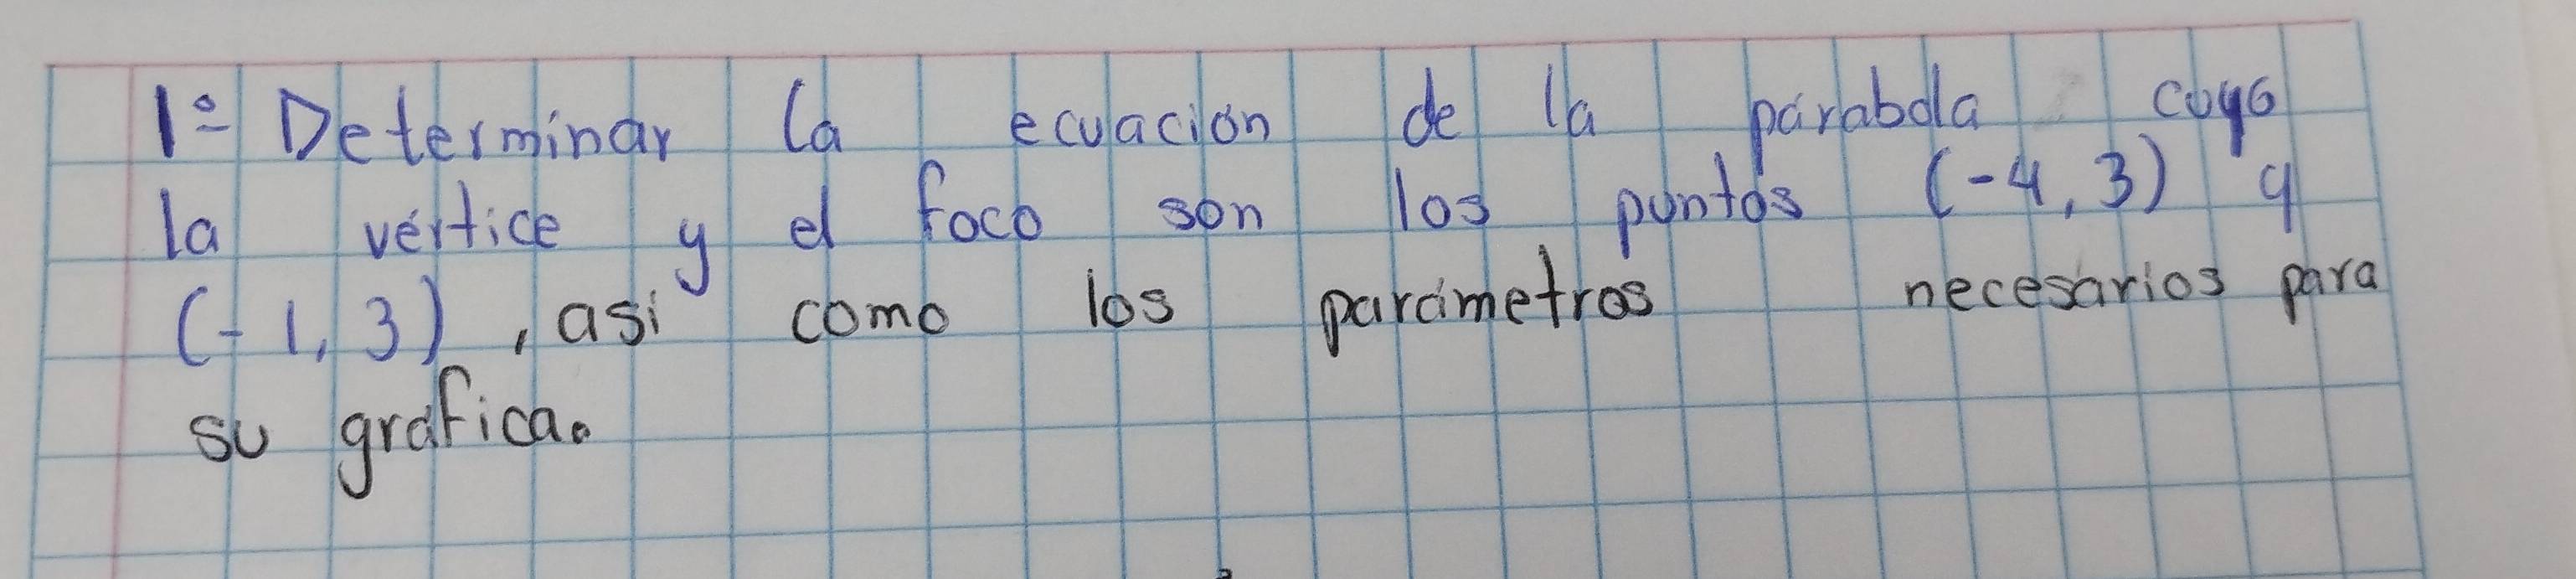 1º Determinar la ecuación de la parabola cuyo
la vértice y el foco son los puntos (-4, 3) y
(-1, 3), asi como los parámetros necesarios para
su grafica.